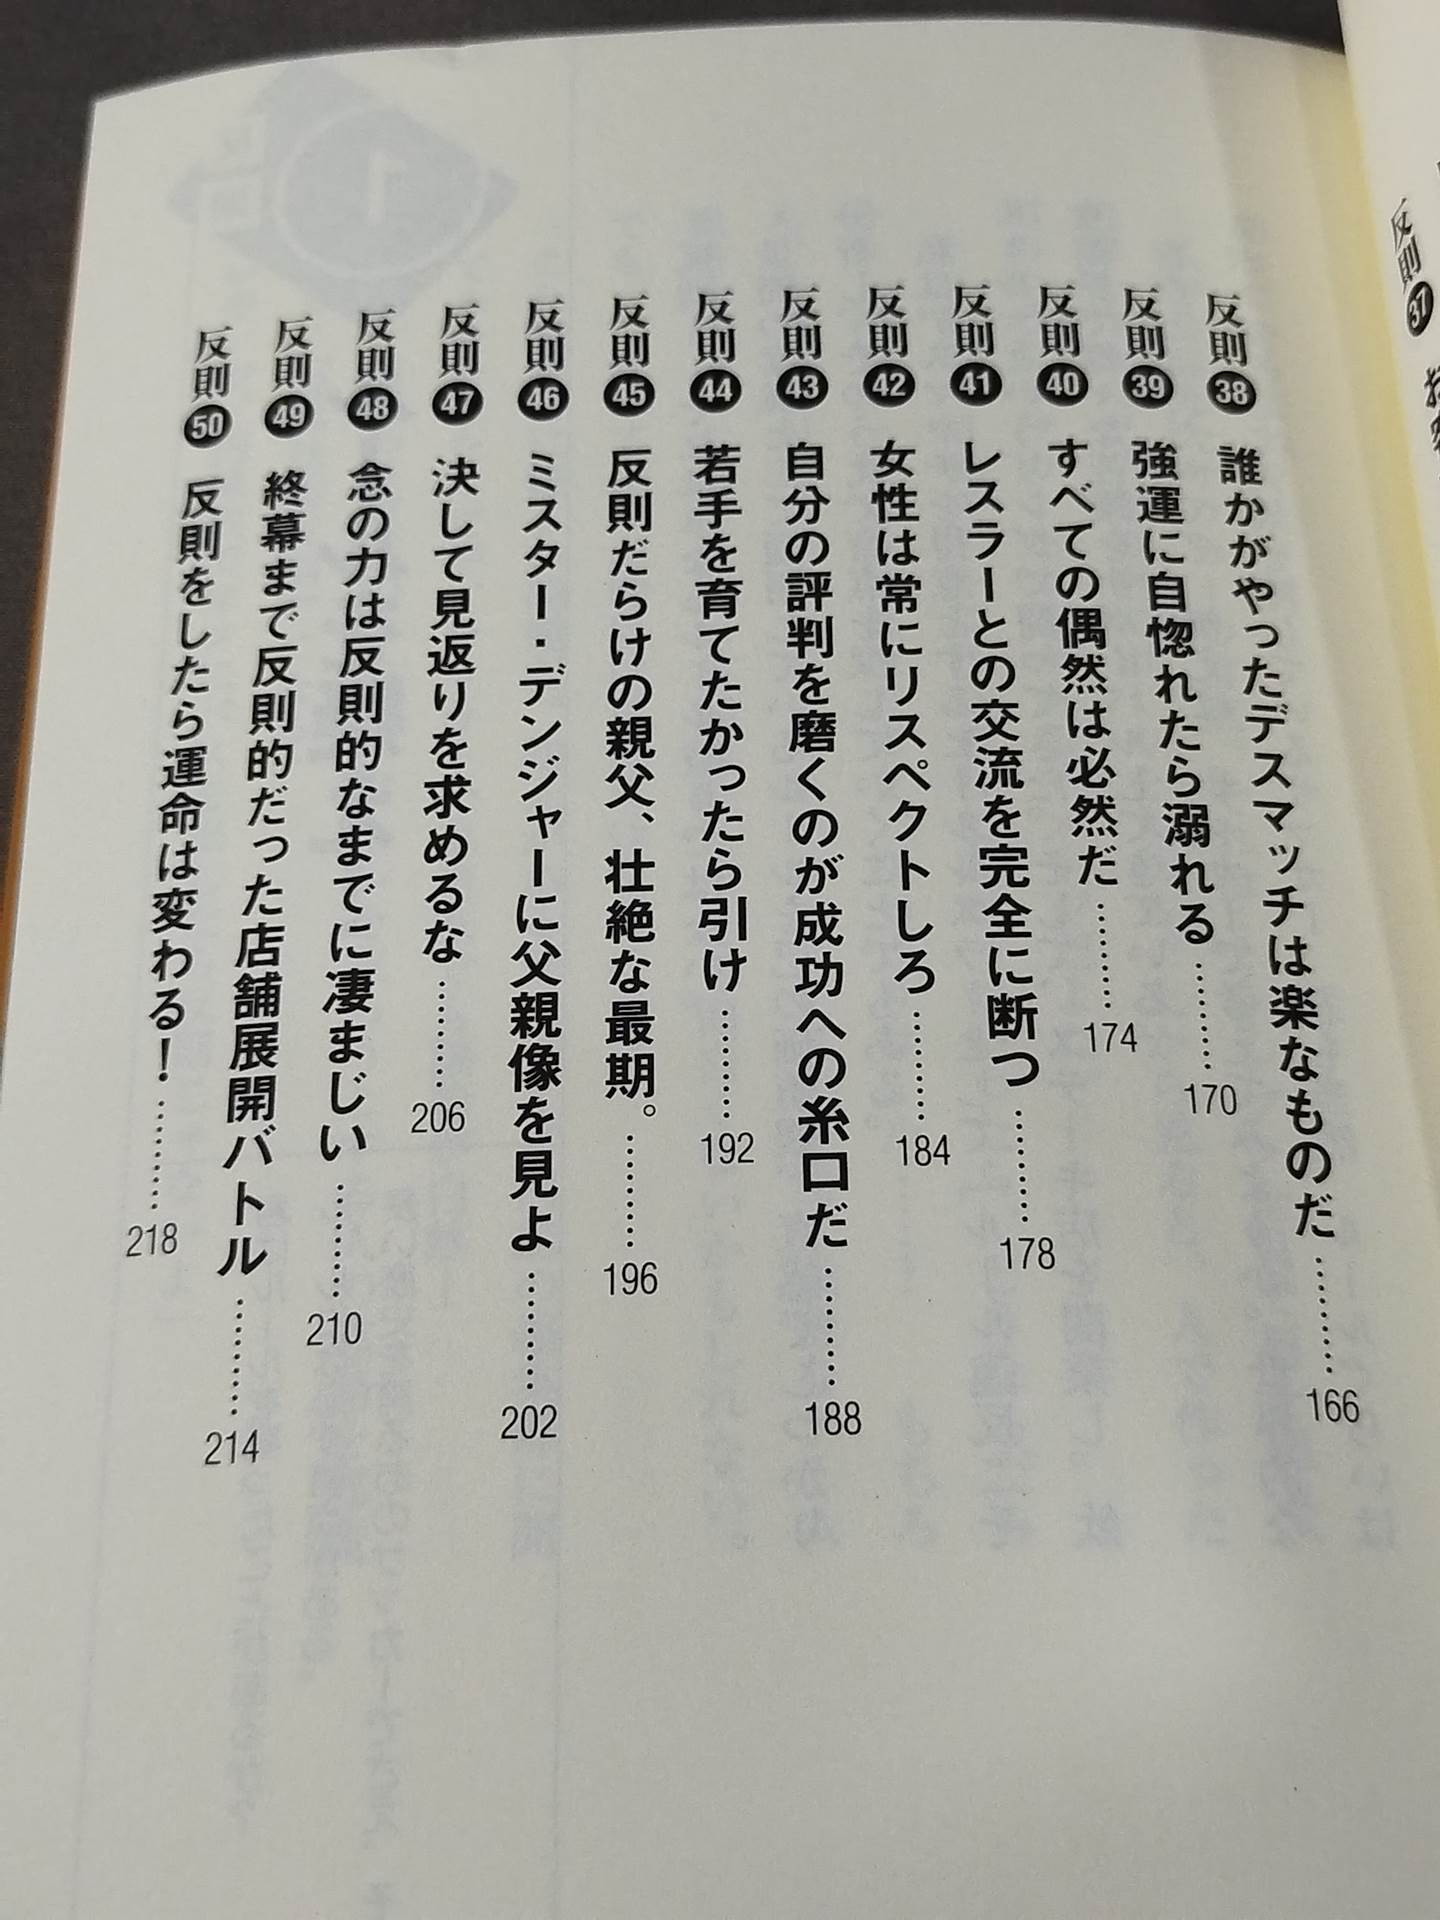 反則37
反則38 誰かがやったデスマッチは楽なものだ………166
反則39 強運に自惚れたら溺れる………170
反則40 すべての偶然は必然だ………174
反則41 レスラーとの交流を完全に断つ………178
反則42 女性は常にリスペクトしろ………184
反則43 自分の評判を磨くのが成功への糸口だ………188
反則44 若手を育てたかったら引け………192
反則45 反則だらけの親父、壮絶な最期。………196
反則46 ミスター・デンジャーに父親像を見よ………202
反則47 決して見返りを求めるな………206
反則48 念の力は反則的なまでに凄まじい………210
反則49 終幕まで反則的だった店舗展開バトル………214
反則50 反則をしたら運命は変わる！………218